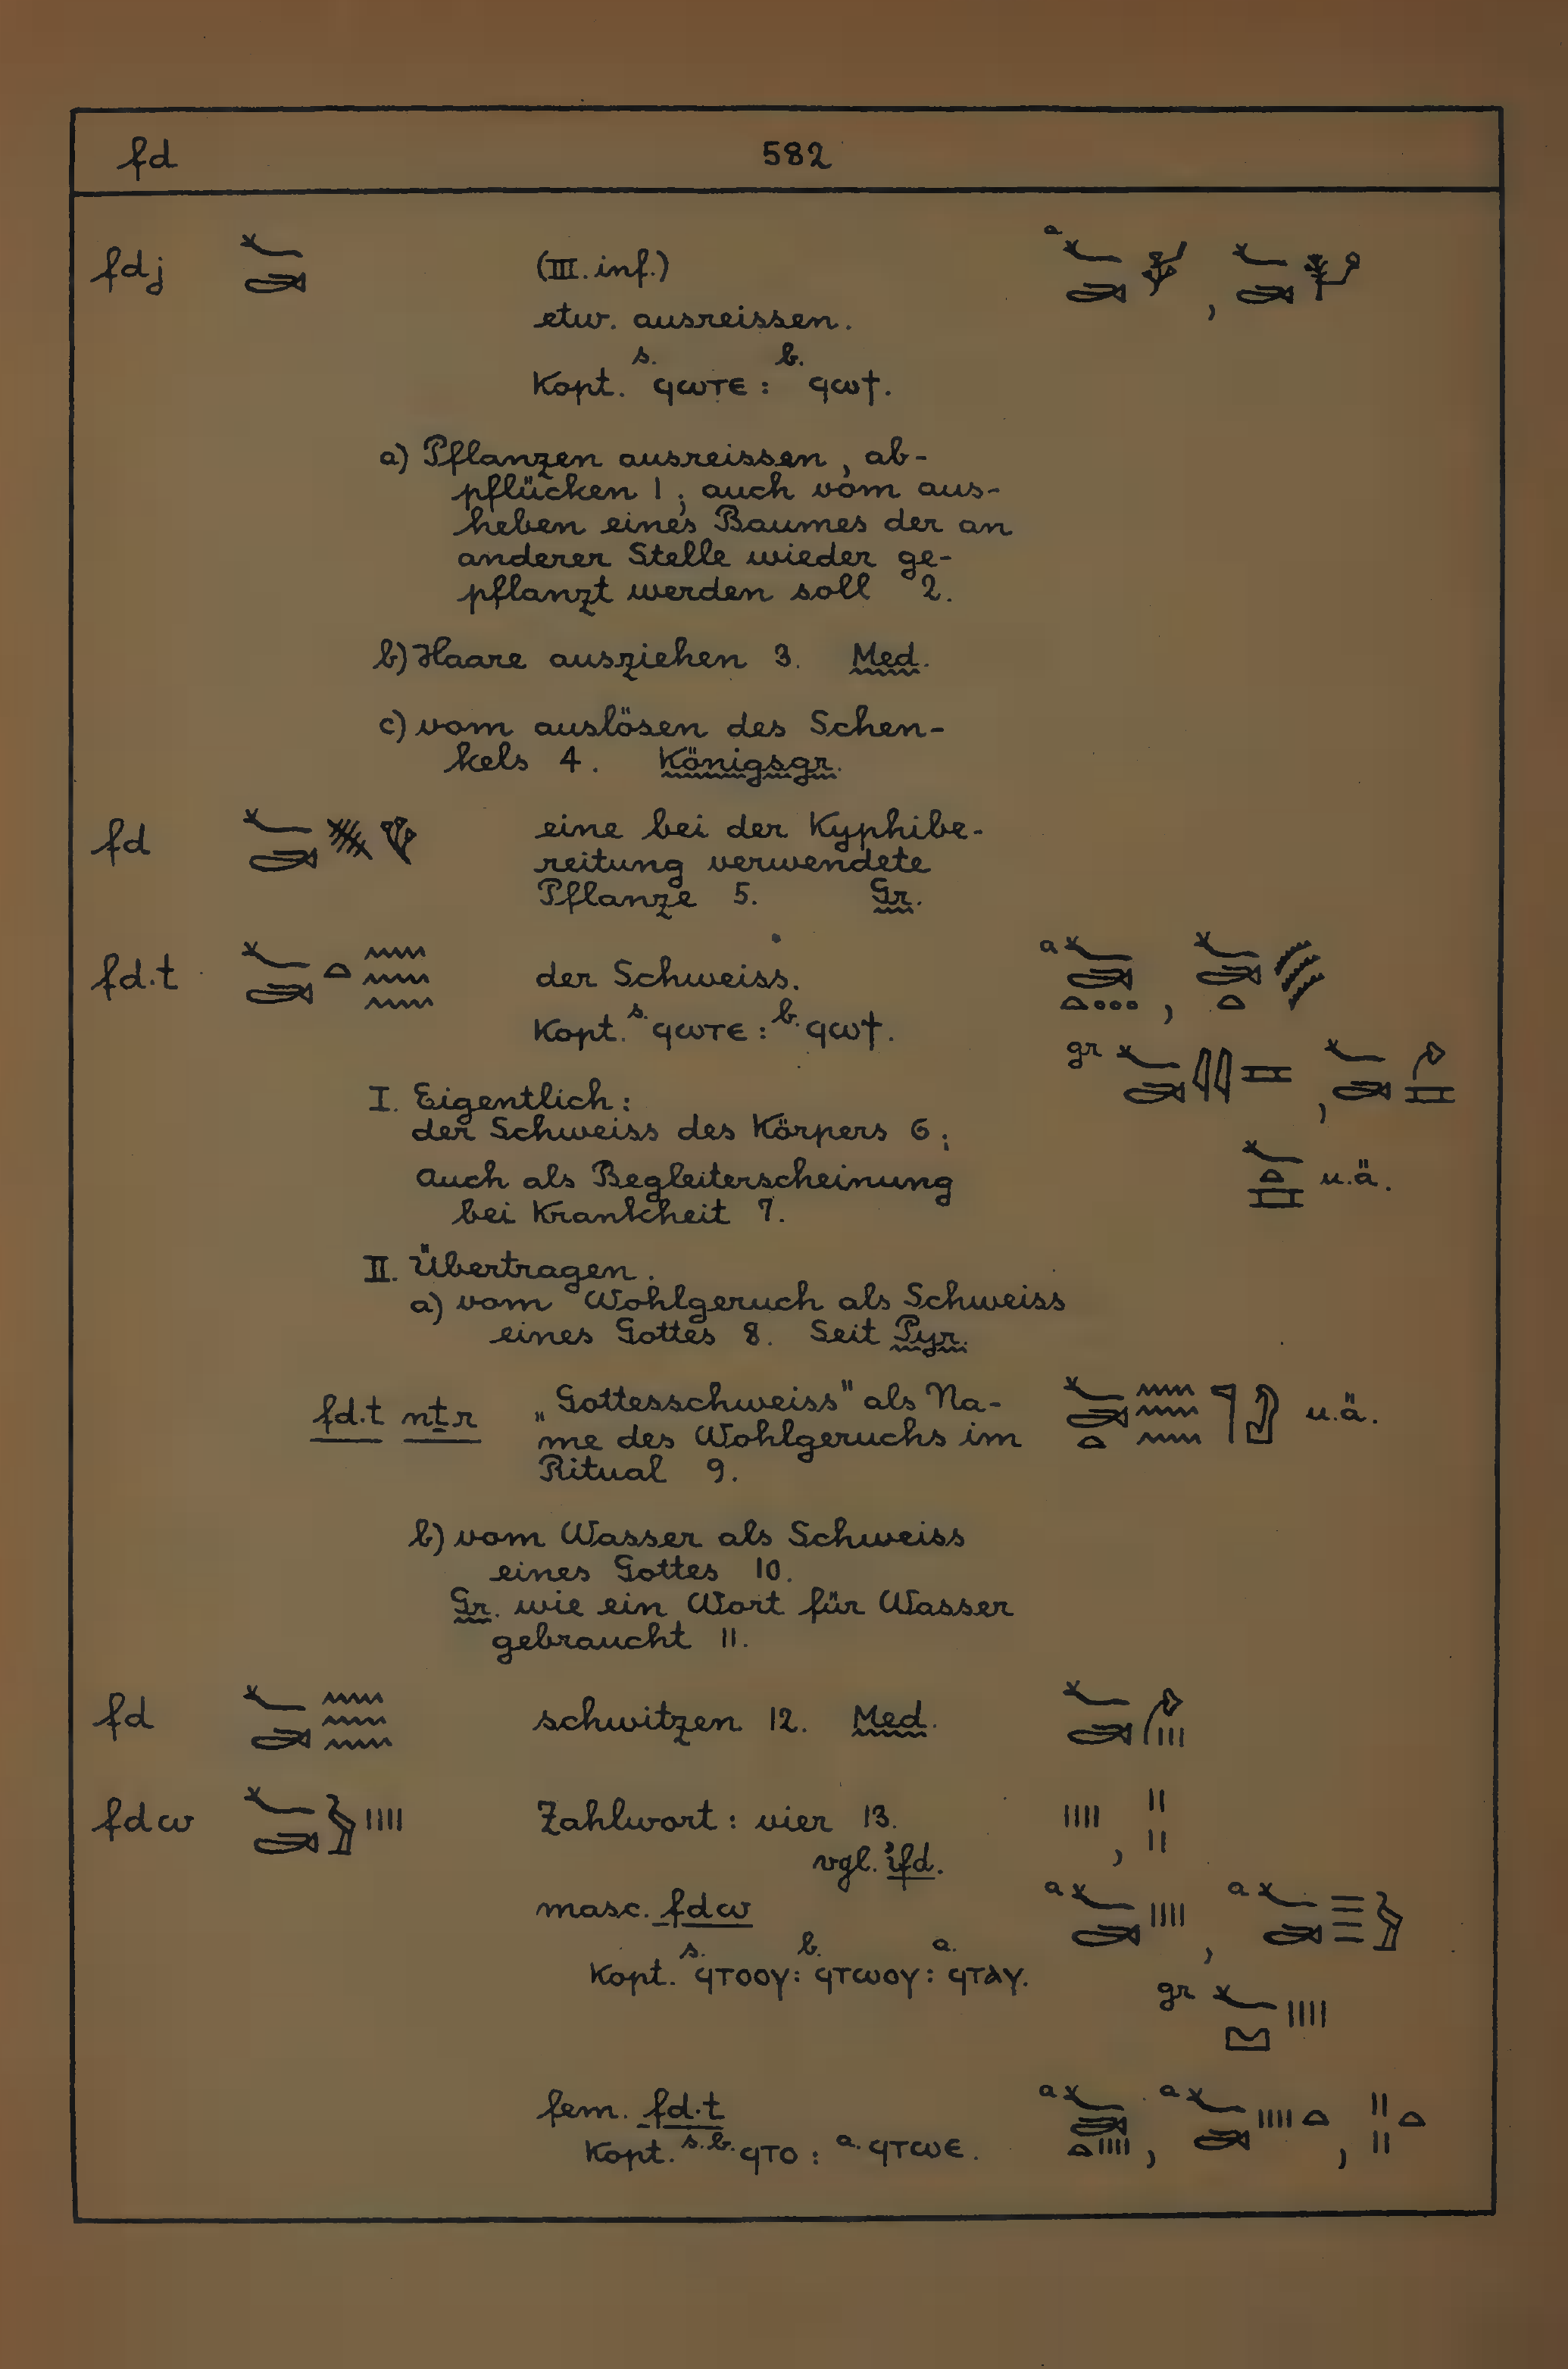 fd 582
fdj 𓆑𓂧 (III. inf.)
etw. ausreissen.
Kopt. s. ϥⲱⲧⲉ : b. ϥⲱϯ.
a) Pflanzen ausreissen, ab-
pflücken 1; auch vom aus-
heben eines Baumes der an
anderer Stelle wieder ge-
pflanzt werden soll 2.
b) Haare ausziehen 3. Med.
c) vom auslösen des Schen-
kels 4. Königsgr.
fd eine bei der Kyphibe-
reitung verwendete
Pflanze 5. Gr.
fd.t 𓆑𓂧𓏏𓈗 der Schweiss.
Kopt. s. ϥⲱⲧⲉ : b. ϥⲱϯ.
gr
I. Eigentlich:
der Schweiss des Körpers 6;
Auch als Begleiterscheinung
bei Krankheit 7.
u.ä.
II. Übertragen.
a) vom Wohlgeruch als Schweiss
eines Gottes 8. Seit Pyr.
fd.t nṯr „Gottesschweiss" als Na-
me des Wohlgeruchs im
Ritual 9.
u.ä.
b) vom Wasser als Schweiss
eines Gottes 10.
Gr. wie ein Wort für Wasser
gebraucht 11.
fd 𓆑𓂧𓈗 schwitzen 12. Med.
fdw 𓆑𓂧𓅱𓏽 Zahlwort: vier 13.
vgl. ifd.
masc. fdw
Kopt. s. ϥⲧⲟⲟⲩ: b. ϥⲧⲱⲟⲩ: a. ϥⲧⲁⲩ.
gr
fem. fd.t
Kopt. s.b. ϥⲧⲟ : a. ϥⲧⲱⲉ.